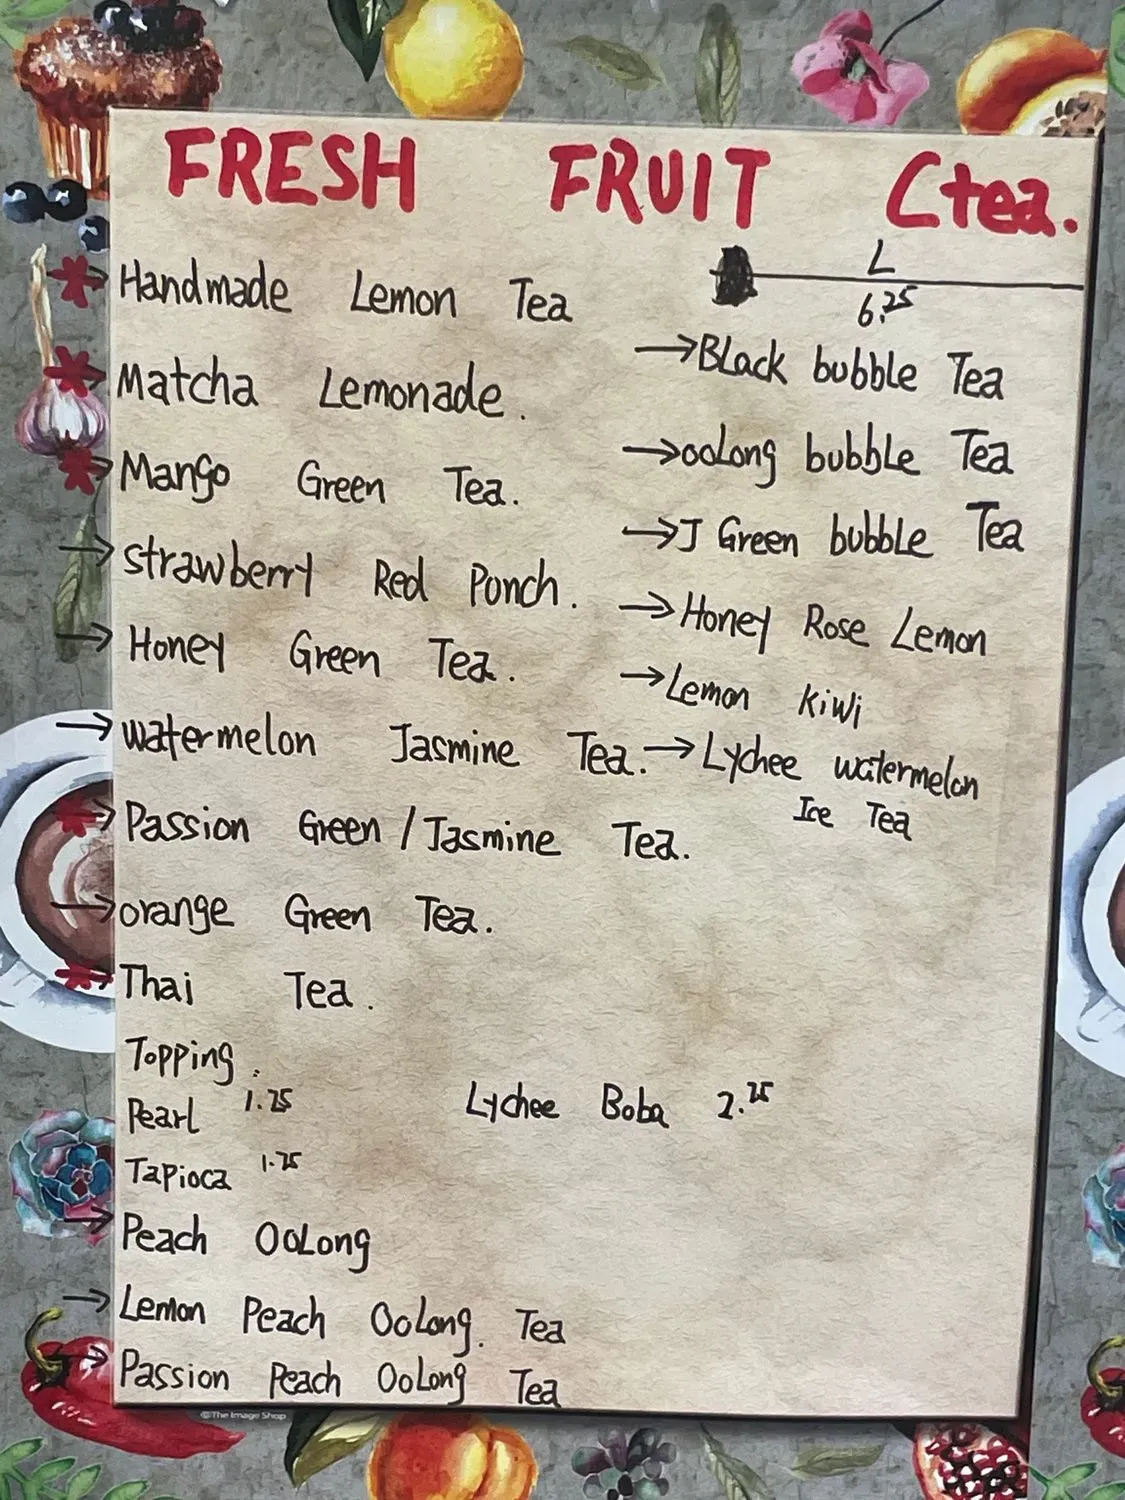 FRESH FRUIT Ctea.
L
6.25
Handmade Lemon Tea
Matcha Lemonade.
Mango Green Tea.
strawberry Red Ponch.
Honey Green Tea.
watermelon Jasmine Tea.
Passion Green / Jasmine Tea.
orange Green Tea.
Thai Tea.
→BLack bubble Tea
→ooLong bubble Tea
→J Green bubble Tea
→Honey Rose Lemon
→Lemon kiwi
→Lychee watermelon
Ice Tea
Topping:
Pearl 1.25
Tapioca 1.75
Lychee Boba 2.25
→Peach OoLong
→Lemon Peach OoLong. Tea
→Passion Peach OoLong Tea
©The Image Shop